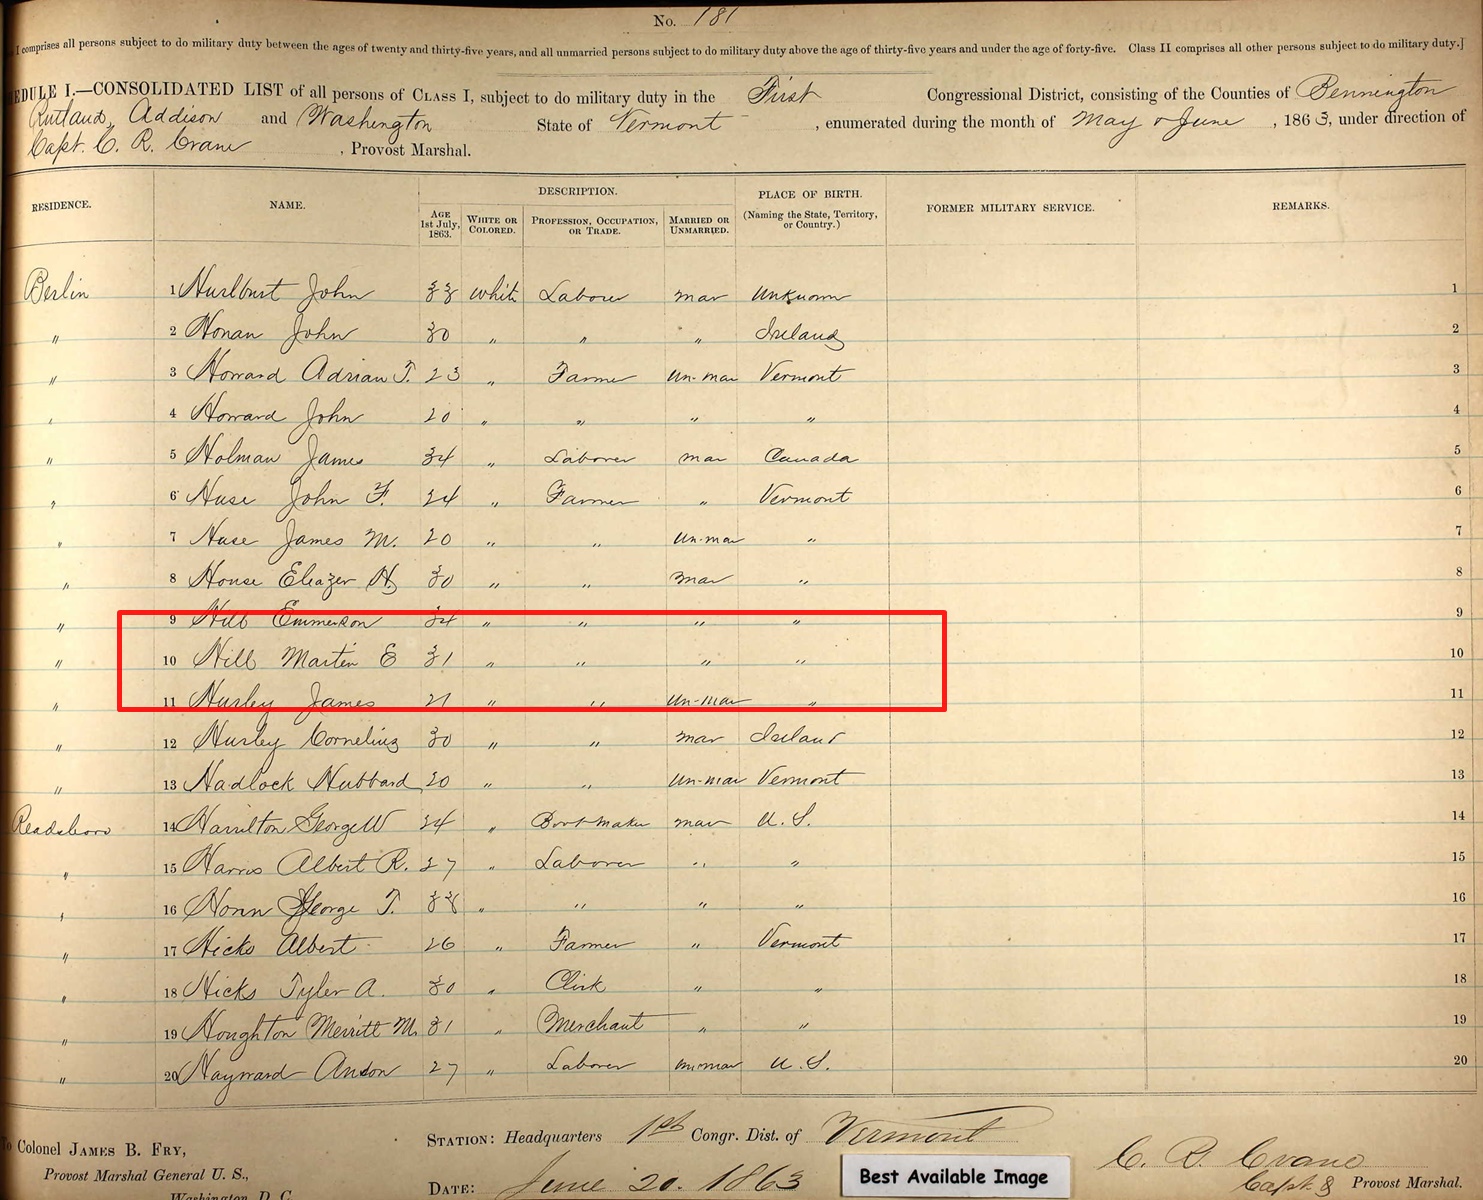 No. 181
I comprises all persons subject to do military duty between the ages of twenty and thirty-five years, and all unmarried persons subject to do military duty above the age of thirty-five years and under the age of forty-five. Class II comprises all other persons subject to do military duty.]
EDULE I.—CONSOLIDATED LIST of all persons of CLASS I, subject to do military duty in the First Congressional District, consisting of the Counties of Bennington
Rutland, Addison and Washington State of Vermont, enumerated during the month of May & June, 1863, under direction of
Capt. C. R. Crane, Provost Marshal.
RESIDENCE. NAME. DESCRIPTION. PLACE OF BIRTH. (Naming the State, Territory, or Country.) FORMER MILITARY SERVICE. REMARKS.
AGE 1st July, 1863. WHITE OR COLORED. PROFESSION, OCCUPATION, OR TRADE. MARRIED OR UNMARRIED.
Berlin 1 Hurlburt John 33 White Laborer mar Unknown 1
" 2 Honan John 30 " " " Ireland 2
" 3 Howard Adrian T. 23 " Farmer un-mar Vermont 3
" 4 Howard John 20 " " " " 4
" 5 Holman James 34 " Laborer mar Canada 5
" 6 Huse John F. 24 " Farmer " Vermont 6
" 7 Huse James M. 20 " " un-mar " 7
" 8 House Eleazer H. 30 " " mar " 8
" 9 Hill Emmerson 34 " " " " 9
" 10 Hill Martin E 31 " " " " 10
" 11 Hurley James 21 " " un-mar " 11
" 12 Hurley Cornelius 30 " " mar Ireland 12
" 13 Hadlock Hubbard 20 " " un-mar Vermont 13
Readsboro 14 Hamilton George W 24 " Boot-maker mar U. S. 14
" 15 Harris Albert R. 27 " Laborer " " 15
" 16 George T. " " " " 16
" 17 Hicks Albert 26 " Farmer " Vermont 17
" 18 Hicks Tyler A. 30 " Clerk " " 18
" 19 Houghton Merritt M. 31 " Merchant " " 19
" 20 Hayward Anson 27 " Laborer un-mar U. S. 20
To Colonel JAMES B. FRY,
Provost Marshal General U. S.,
Washington, D. C.
STATION: Headquarters 1st Congr. Dist. of Vermont
DATE: June 20. 1863
C. R. Crane
Capt & Provost Marshal.
Best Available Image